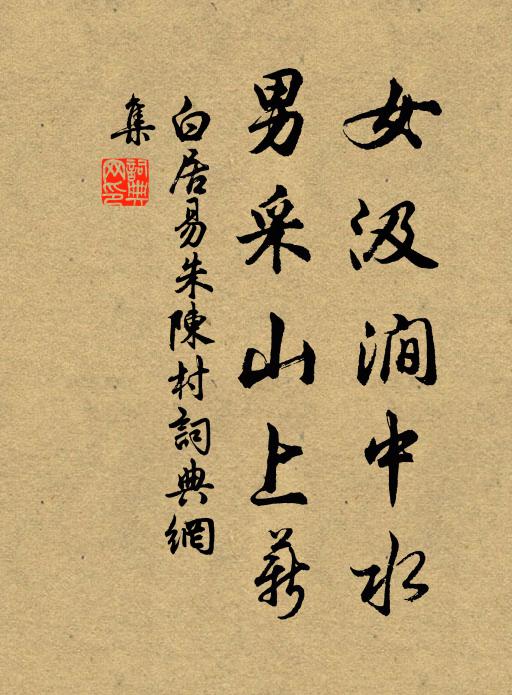 女汲澗中水
男采山上薪
白居易朱陳村詞典網
集
詞典
网印